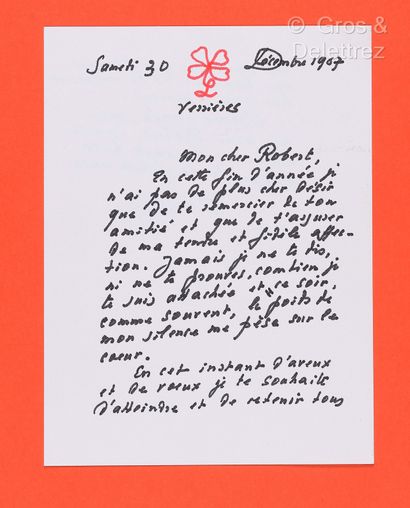 © Gros &
Delettrez
Samedi 30 Décembre 1967
L
Verrières
Mon cher Robert,
En cette fin d'année je
n'ai pas de plus cher désir
que de te remercier de ton
amitié et que de t'assurer
de ma tendre et fidèle affec-
tion. Jamais je ne te dis,
ni ne te prouve, combien je
te suis attachée et ce soir,
comme souvent, le poids de
mon silence me pèse sur le
cœur.
En cet instant d'aveux
et de vœux je te souhaite
d'atteindre et de retenir tous